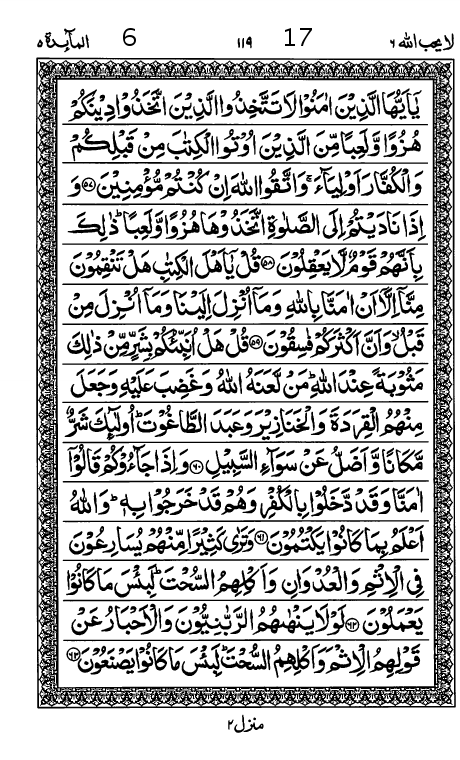 المآئدة ٥ 6 ١١٩ 17 لا یحب الله ٦
يٰٓاَيُّهَا الَّذِيْنَ اٰمَنُوْا لَا تَتَّخِذُوا الَّذِيْنَ اتَّخَذُوْا دِيْنَكُمْ
هُزُوًا وَّلَعِبًا مِّنَ الَّذِيْنَ اُوْتُوا الْكِتٰبَ مِنْ قَبْلِكُمْ
وَالْكُفَّارَ اَوْلِيَآءَ ۚ وَاتَّقُوا اللّٰهَ اِنْ كُنْتُمْ مُّؤْمِنِيْنَ ﴿٥٧﴾ وَ
اِذَا نَادَيْتُمْ اِلَى الصَّلٰوةِ اتَّخَذُوْهَا هُزُوًا وَّلَعِبًا ؕ ذٰلِكَ
بِاَنَّهُمْ قَوْمٌ لَّا يَعْقِلُوْنَ ﴿٥٨﴾ قُلْ يٰٓاَهْلَ الْكِتٰبِ هَلْ تَنْقِمُوْنَ
مِنَّآ اِلَّآ اَنْ اٰمَنَّا بِاللّٰهِ وَمَآ اُنْزِلَ اِلَيْنَا وَمَآ اُنْزِلَ مِنْ
قَبْلُ ۙ وَاَنَّ اَكْثَرَكُمْ فٰسِقُوْنَ ﴿٥٩﴾ قُلْ هَلْ اُنَبِّئُكُمْ بِشَرٍّ مِّنْ ذٰلِكَ
مَثُوْبَةً عِنْدَ اللّٰهِ ؕ مَنْ لَّعَنَهُ اللّٰهُ وَغَضِبَ عَلَيْهِ وَجَعَلَ
مِنْهُمُ الْقِرَدَةَ وَالْخَنَازِيْرَ وَعَبَدَ الطَّاغُوْتَ ؕ اُولٰٓئِكَ شَرٌّ
مَّكَانًا وَّاَضَلُّ عَنْ سَوَآءِ السَّبِيْلِ ﴿٦٠﴾ وَاِذَا جَآءُوْكُمْ قَالُوْٓا
اٰمَنَّا وَقَدْ دَّخَلُوْا بِالْكُفْرِ وَهُمْ قَدْ خَرَجُوْا بِهٖ ؕ وَاللّٰهُ
اَعْلَمُ بِمَا كَانُوْا يَكْتُمُوْنَ ﴿٦١﴾ وَتَرٰى كَثِيْرًا مِّنْهُمْ يُسَارِعُوْنَ
فِى الْاِثْمِ وَالْعُدْوَانِ وَاَكْلِهِمُ السُّحْتَ ؕ لَبِئْسَ مَا كَانُوْا
يَعْمَلُوْنَ ﴿٦٢﴾ لَوْلَا يَنْهٰهُمُ الرَّبّٰنِيُّوْنَ وَالْاَحْبَارُ عَنْ
قَوْلِهِمُ الْاِثْمَ وَاَكْلِهِمُ السُّحْتَ ؕ لَبِئْسَ مَا كَانُوْا يَصْنَعُوْنَ ﴿٦٣﴾
منزل ٢